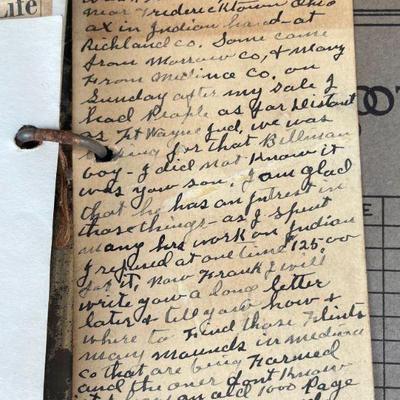 Life
near Fredericktown Ohio
ax in Indian hand - at
Richland co. Some came
from Morrow co, & many
From Medina co. on
Sunday after my sale I
had People as far Distant
as Ft Wayne Ind, we was
for that Billman
boy - I did not Know it
was your son. I am glad
that he has an Intrest in
those things - as I spent
many hrs work on Indian
I refused at one time $125.00
for it, Now Frank I will
write you a long letter
later & tell you how &
where to Find those Flints
many mounds in medina
co that are being Farmed
and the oner dont Know
an old 1000 Page